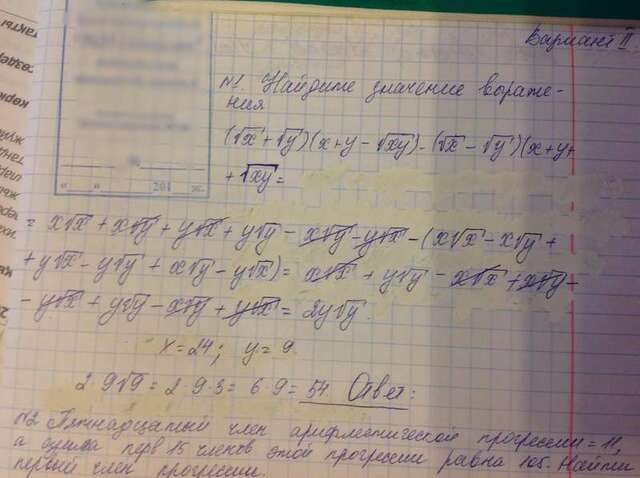 Вариант II
№1. Найдите значение выраже-
ния
(√x + √y)(x+y - √xy) - (√x - √y)(x+y+
+ √xy =
= x√x + x√y + y√x + y√y - x√y - y√x - (x√x - x√y +
+ y√x - y√y + x√y - y√x) = x√x + y√y - x√x + x√y -
- y√x + y√y - x√y + y√x = 2y√y.
x=24; y=9.
2·9√9 = 2·9·3 = 6·9 = 54. Ответ:
№2 Пятнадцатый член арифметической прогрессии = 11,
а сумма перв 15 членов этой прогрессии равна 105. Найти
первый член прогрессии.
201 ж.